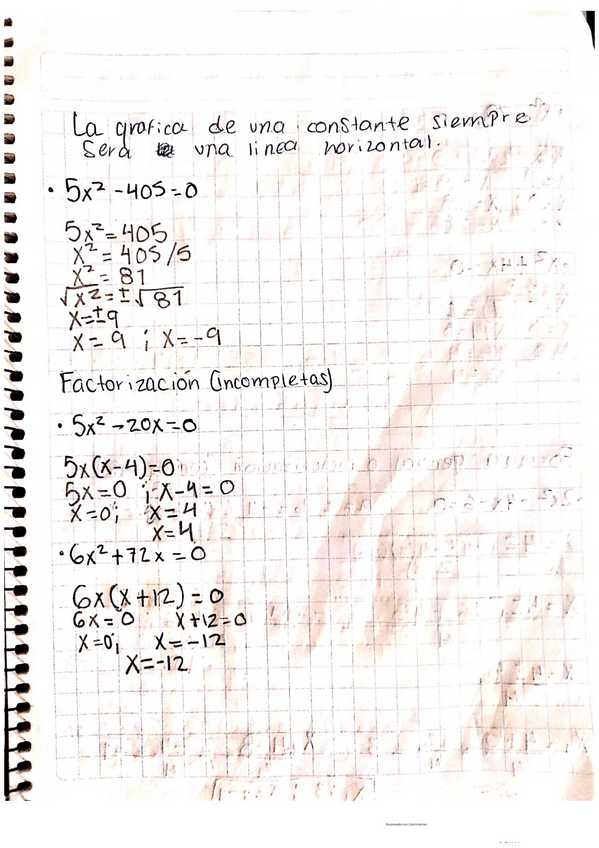 La grafica de una constante siempre
Sera una linea horizontal.
• 5x² - 405 = 0
5x² = 405
x² = 405/5
x² = 81
√x² = ±√81
x = ±9
x = 9 ; x = -9
Factorización (incompletas)
• 5x² - 20x = 0
5x(x-4) = 0
5x = 0 ; x-4 = 0
x = 0; x = 4
x = 4
• 6x² + 72x = 0
6x(x+12) = 0
6x = 0 x+12 = 0
x = 0; x = -12
x = -12
Escaneado con CamScanner